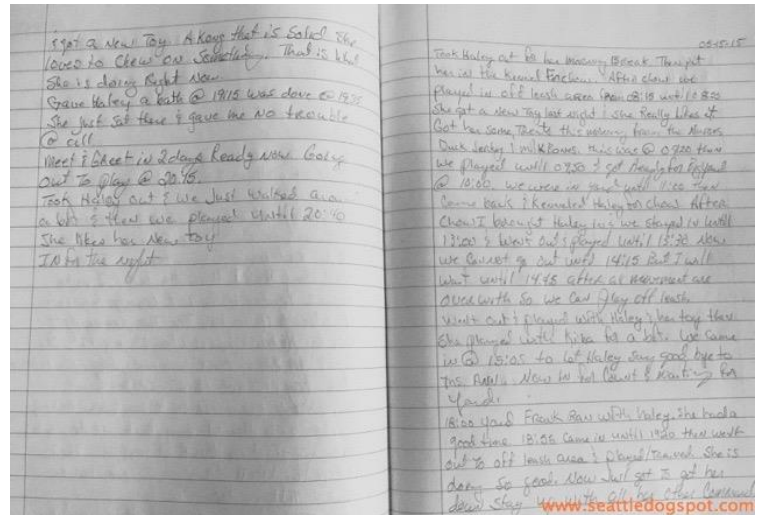 I got a New Toy A Kong that is Solid She
loves to Chew on Something. That is what
She is doing Right Now
Gave Haley a bath @ 19:15 was done @ 19:35
She Just Sat there & gave me No trouble
@ all
Meet & Greet in 2 days Ready Now Going
out To play @ 20:15.
Took Haley out & we Just walked
a bit & then we played until 20:40
She likes her New Toy
IN for the night
05-15-15
Took Haley out for her morning Break. Then put
her in the Kennel For chow. After chow we
played in off leash area from 08:15 until 08:50
She got a New Toy last night & she Really likes it
Got her some Treats this morning from the
Duck Jerky & milk Bones. this was @ 0920 then
we played until 0950 & got Ready for
@ 10:00. we were in yard until 11:00 then
Came back & Kenneled Haley for chow After
Chow I brought Haley in & we Stayed in until
13:00 & Went out & played until 13:30 Now
we Cannot go out until 14:15 But I will
wait until 14:45 after all movement are
over with So we Can Play off leash
Went out & played with Haley & her toy then
She played with Kiba for a bit. We came
in @ 15:05 to let Haley say good bye to
Ms. Now in for Count & Waiting for
Yard.
18:00 yard Freak Ran with Haley. She had a
good time 18:55 Came in until 1920 then went
out to off leash area & played/Trained She is
doing So good. Now Just got to get her
down Stay with all her other Command
www.seattledogspot.com